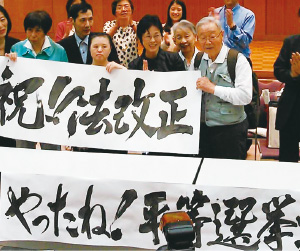 祝!!法改正
やったね!平等選挙